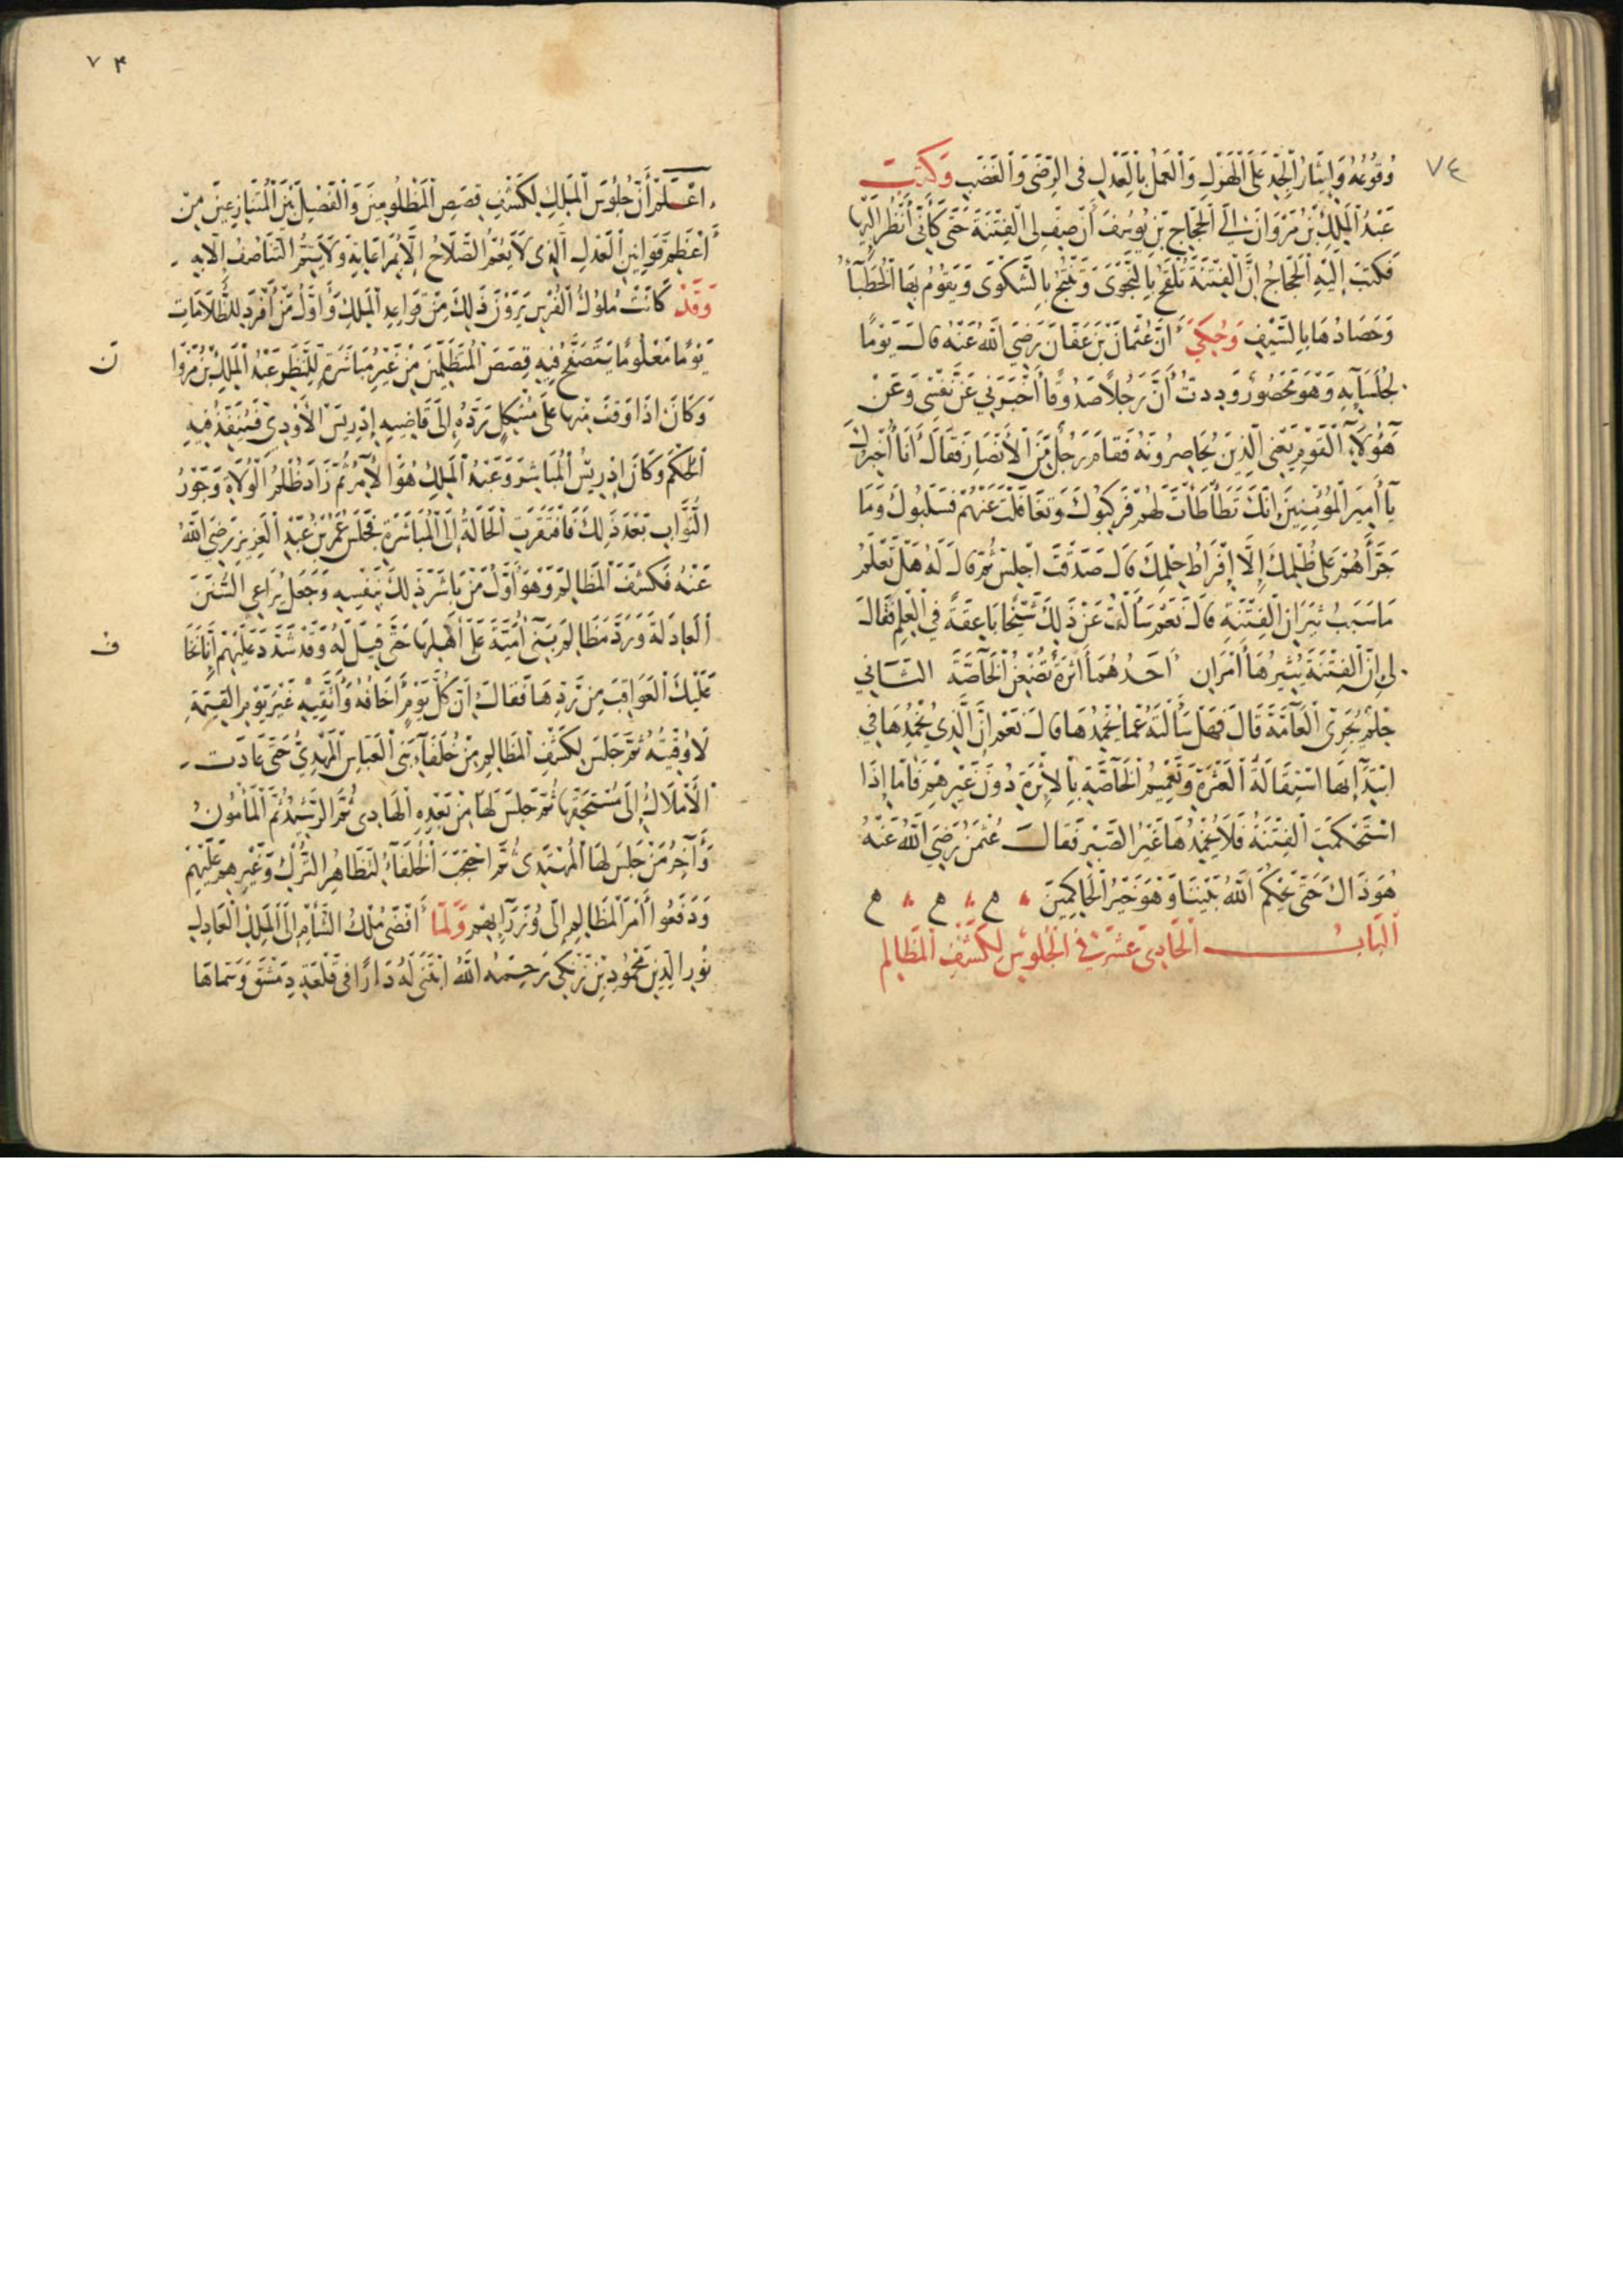 ٧٤
وُقُوعُهُ وَإِيثَارُ الْجِدِّ عَلَى الْهَزْلِ وَالْعَمَلُ بِالْعَدْلِ فِي الرِّضَى وَالْغَضَبِ وَكَتَبَ
عَبْدُ الْمَلِكِ بْنُ مَرْوَانَ إِلَى الْحَجَّاجِ بْنِ يُوسُفَ أَنْ صِفْ لِي الْفِتْنَةَ حَتَّى كَأَنِّي أَنْظُرُ إِلَيْهَا
فَكَتَبَ إِلَيْهِ الْحَجَّاجُ إِنَّ الْفِتْنَةَ تُلْقَحُ بِالنَّجْوَى وَتُنْتَجُ بِالشَّكْوَى وَيَقُومُ بِهَا الْخُطَبَاءُ
وَحَصَادُهَا بِالسَّيْفِ وَحُكِيَ أَنَّ عُثْمَانَ بْنَ عَفَّانَ رَضِيَ اللَّهُ عَنْهُ قَالَ يَوْمًا
لِجُلَسَائِهِ وَهُوَ مَحْصُورٌ وَدِدتُ أَنَّ رَجُلًا صَدُوقًا أَخْبَرَنِي عَنْ نَفْسِي وَعَنْ
هَؤُلَاءِ الْقَوْمِ يَعْنِي الَّذِينَ يُحَاصِرُونَهُ فَقَامَ رَجُلٌ مِنَ الْأَنْصَارِ فَقَالَ أَنَا أُخْبِرُكَ
يَا أَمِيرَ الْمُؤْمِنِينَ إِنَّكَ تَطَأْطَأْتَ لَهُمْ فَرَكِبُوكَ وَتَغَافَلْتَ عَنْهُمْ فَسَلَبُوكَ وَمَا
جَرَّأَهُمْ عَلَى ظُلْمِكَ إِلَّا إِفْرَاطُ حِلْمِكَ قَالَ صَدَقْتَ اجْلِسْ ثُمَّ قَالَ لَهُ هَلْ تَعْلَمُ
مَا سَبَبُ نِيرَانِ الْفِتْنَةِ قَالَ نَعَمْ سَأَلْتُ عَنْ ذَلِكَ شَيْخًا بَاعِقَةً فِي الْعِلْمِ فَقَالَ
لِي إِنَّ الْفِتْنَةَ يُثِيرُهَا أَمْرَانِ أَحَدُهُمَا أَثَرَةٌ تُضْغِنُ الْخَاصَّةَ الثَّانِي
حِلْمٌ يُجَرِّي الْعَامَّةَ قَالَ فَهَلْ سَأَلْتَهُ عَمَّا يُخْمِدُهَا قَالَ نَعَمْ إِنَّ الَّذِي يُخْمِدُهَا فِي
ابْتِدَائِهَا اسْتِقَالَةُ الْعَثْرَةِ وَتَعْمِيمُ الْخَاصَّةِ بِالْأَثَرَةِ دُونَ غَيْرِهِمْ فَأَمَّا إِذَا
اسْتَحْكَمَتِ الْفِتْنَةُ فَلَا يُخْمِدُهَا غَيْرُ الصَّبْرِ فَقَالَ عُثْمَنُ رَضِيَ اللَّهُ عَنْهُ
هُوَ ذَاكَ حَتَّى يَحْكُمَ اللَّهُ بَيْنَنَا وَهُوَ خَيْرُ الْحَاكِمِينَ
الْبَابُ الْحَادِي عَشَرَ فِي الْجُلُوسِ لِكَشْفِ الْمَظَالِمِ
٧٤
اعْلَمْ أَنَّ جُلُوسَ الْمَلِكِ لِكَشْفِ قِصَصِ الْمَظْلُومِينَ وَالْفَصْلِ بَيْنَ الْمُتَنَازِعِينَ مِنْ
أَعْظَمِ قَوَانِينِ الْعَدْلِ الَّذِي لَا يَعُمُّ الصَّلَاحُ إِلَّا بِمُرَاعَاتِهِ وَلَا يَتِمُّ التَّنَاصُفُ إِلَّا بِهِ
وَقَدْ كَانَتْ مُلُوكُ الْفُرْسِ يَرَوْنَ ذَلِكَ مِنْ قَوَاعِدِ الْمُلْكِ وَأَوَّلُ مَنْ أَفْرَدَ لِلظُّلَامَاتِ
يَوْمًا مَعْلُومًا يَتَصَفَّحُ فِيهِ قِصَصَ الْمُتَظَلِّمِينَ مِنْ غَيْرِ مُبَاشَرَةٍ لِلنَّظَرِ عَبْدُ الْمَلِكِ بْنُ مَرْوَا
ن
وَكَانَ إِذَا وَقَفَ مِنْهَا عَلَى مُشْكِلٍ رَدَّهُ إِلَى قَاضِيهِ إِدْرِيسَ الْأَوْدِيِّ فَيُنَفِّذُ فِيهِ
الْحُكْمَ وَكَانَ إِدْرِيسُ الْمُبَاشِرَ وَعَبْدُ الْمَلِكِ هُوَ الْآمِرُ ثُمَّ زَادَ ظُلْمُ الْوُلَاةِ وَجَوْرُ
النُّوَّابِ بَعْدَ ذَلِكَ فَافْتَقَرَتِ الْحَالَةُ إِلَى الْمُبَاشَرَةِ فَجَلَسَ عُمَرُ بْنُ عَبْدِ الْعَزِيزِ رَضِيَ اللَّهُ
عَنْهُ فَكَشَفَ الْمَظَالِمَ وَهُوَ أَوَّلُ مَنْ بَاشَرَ ذَلِكَ بِنَفْسِهِ وَجَعَلَ يُرَاعِي السُّنَنَ
الْعَادِلَةَ وَرَدَّ مَظَالِمَ بَنِي أُمَيَّةَ عَلَى أَهْلِهَا حَتَّى قِيلَ لَهُ وَقَدْ شَدَّدَ عَلَيْهِمْ إِنَّا نَخَا
ف
عَلَيْكَ الْعَوَاقِبَ مِنْ رَدِّهَا فَقَالَ إِنَّ كُلَّ يَوْمٍ أَخَافُهُ وَأَتَّقِيهِ غَيْرَ يَوْمِ الْقِيَمَةِ
لَا وُقِيتُهُ ثُمَّ جَلَسَ لِكَشْفِ الْمَظَالِمِ مِنْ خُلَفَاءِ بَنِي الْعَبَّاسِ الْمَهْدِيُّ حَتَّى عَادَتِ
الْأَمْلَاكُ إِلَى مُسْتَحِقِّهَا ثُمَّ جَلَسَ لَهَا مِنْ بَعْدِهِ الْهَادِي ثُمَّ الرَّشِيدُ ثُمَّ الْمَأْمُونُ
وَآخِرُ مَنْ جَلَسَ لَهَا الْمُهْتَدِي ثُمَّ احْتَجَبَ الْخُلَفَاءُ لِتَظَاهُرِ التُّرْكِ وَغَيْرِهِمْ عَلَيْهِمْ
وَدَفَعُوا أَمْرَ الْمَظَالِمِ إِلَى وُزَرَائِهِمْ وَلَمَّا أَفْضَى مُلْكُ الشَّأْمِ إِلَى الْمَلِكِ الْعَادِلِ
نُورِ الدِّينِ مَحْمُودِ بْنِ زَنْكِي رَحِمَهُ اللَّهُ ابْتَنَى لَهُ دَارًا فِي قَلْعَةِ دِمَشْقَ وَسَمَّاهَا